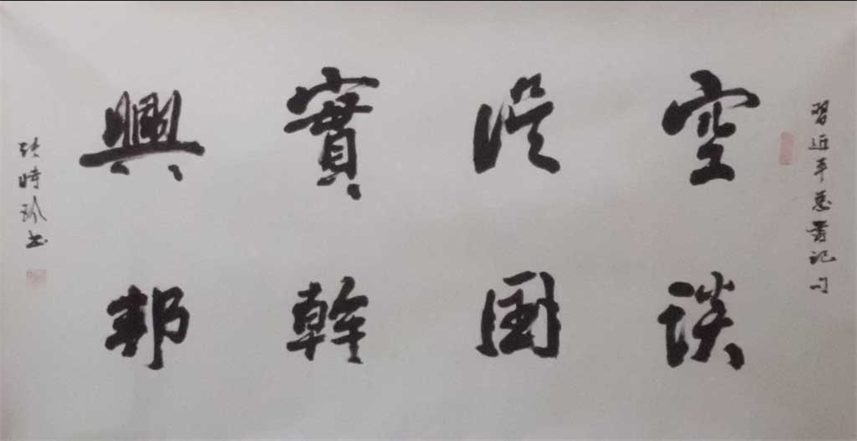 習近平總書記句
空談
誤國
實幹
興邦
張時書